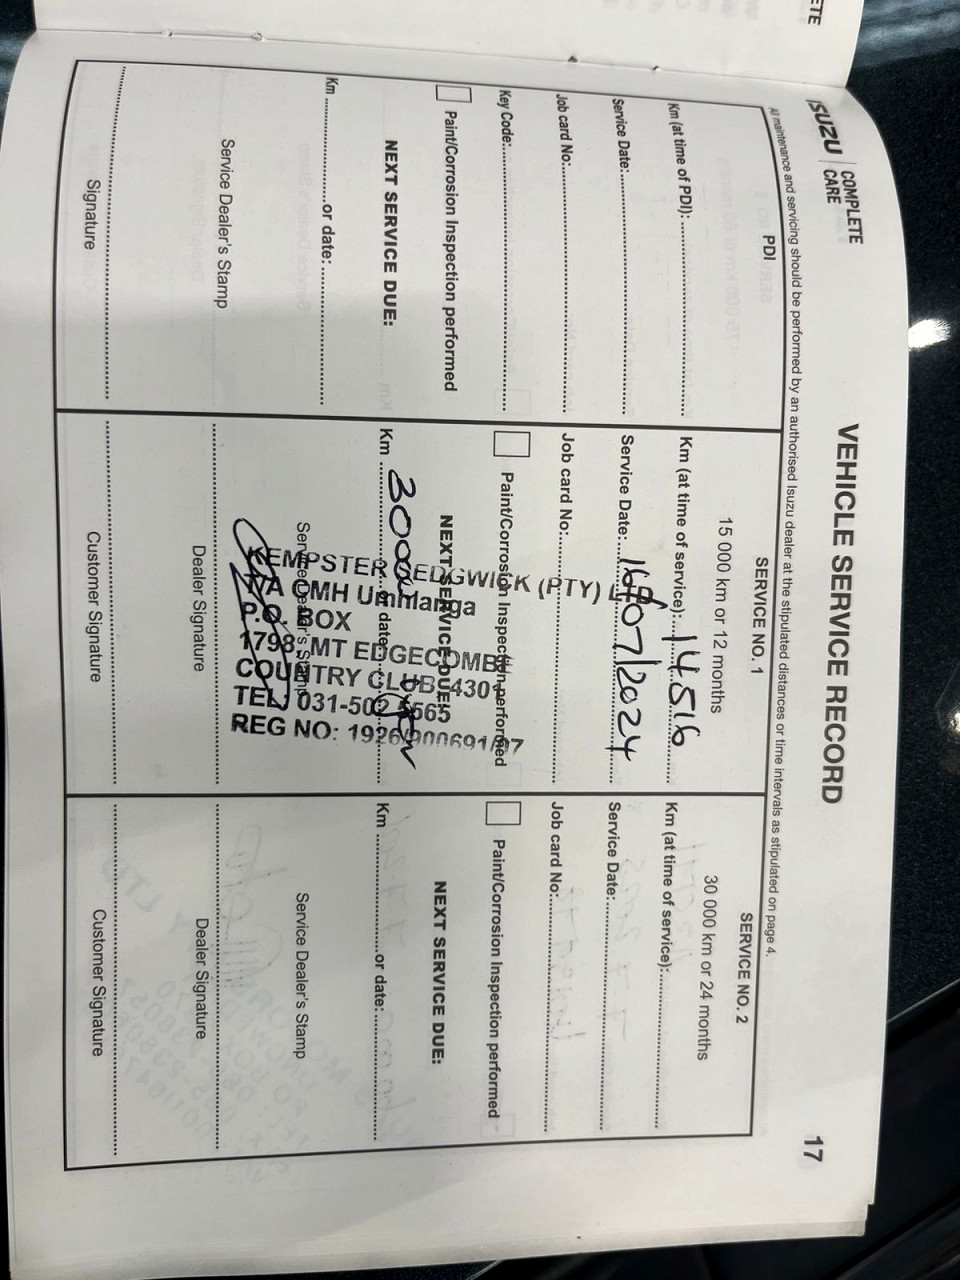 ETE
ISUZU | COMPLETE CARE
VEHICLE SERVICE RECORD
17
All maintenance and servicing should be performed by an authorised Isuzu dealer at the stipulated distances or time intervals as stipulated on page 4.
PDI
Km (at time of PDI):
Service Date:
Job card No:
Key Code:
Paint/Corrosion Inspection performed
NEXT SERVICE DUE:
Km or date:
Service Dealer's Stamp
Signature
SERVICE NO. 1
15 000 km or 12 months
Km (at time of service): 14516
Service Date: 16/07/2024
Job card No:
Paint/Corrosion Inspection performed
NEXT SERVICE DUE:
Km 30000 or date:
Service Dealer's Stamp
KEMPSTER SEDGWICK (PTY)
T/A CMH Umhlanga
P.O. BOX
1798, MT EDGECOMBE
COUNTRY CLUB 4301
TEL 031-502
REG NO: 1926/900691/07
Dealer Signature
Customer Signature
SERVICE NO. 2
30 000 km or 24 months
Km (at time of service):
Service Date:
Job card No:
Paint/Corrosion Inspection performed
NEXT SERVICE DUE:
Km or date:
Service Dealer's Stamp
Dealer Signature
Customer Signature